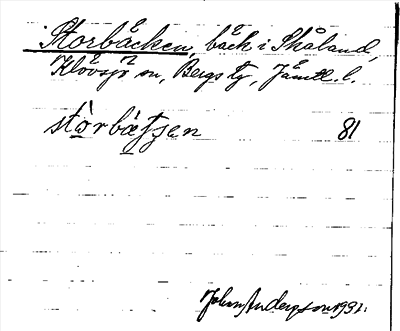 Storbäcken, bäck i Skåland,
Klövsjö sn, Bergs tg, Jämtl. l.
stòrbætʃen 81
John Anderson 1931.